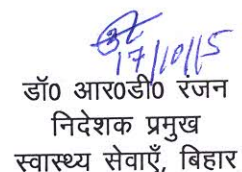 17/10/15
डॉ0 आर0डी0 रंजन
निदेशक प्रमुख
स्वास्थ्य सेवाएँ, बिहार